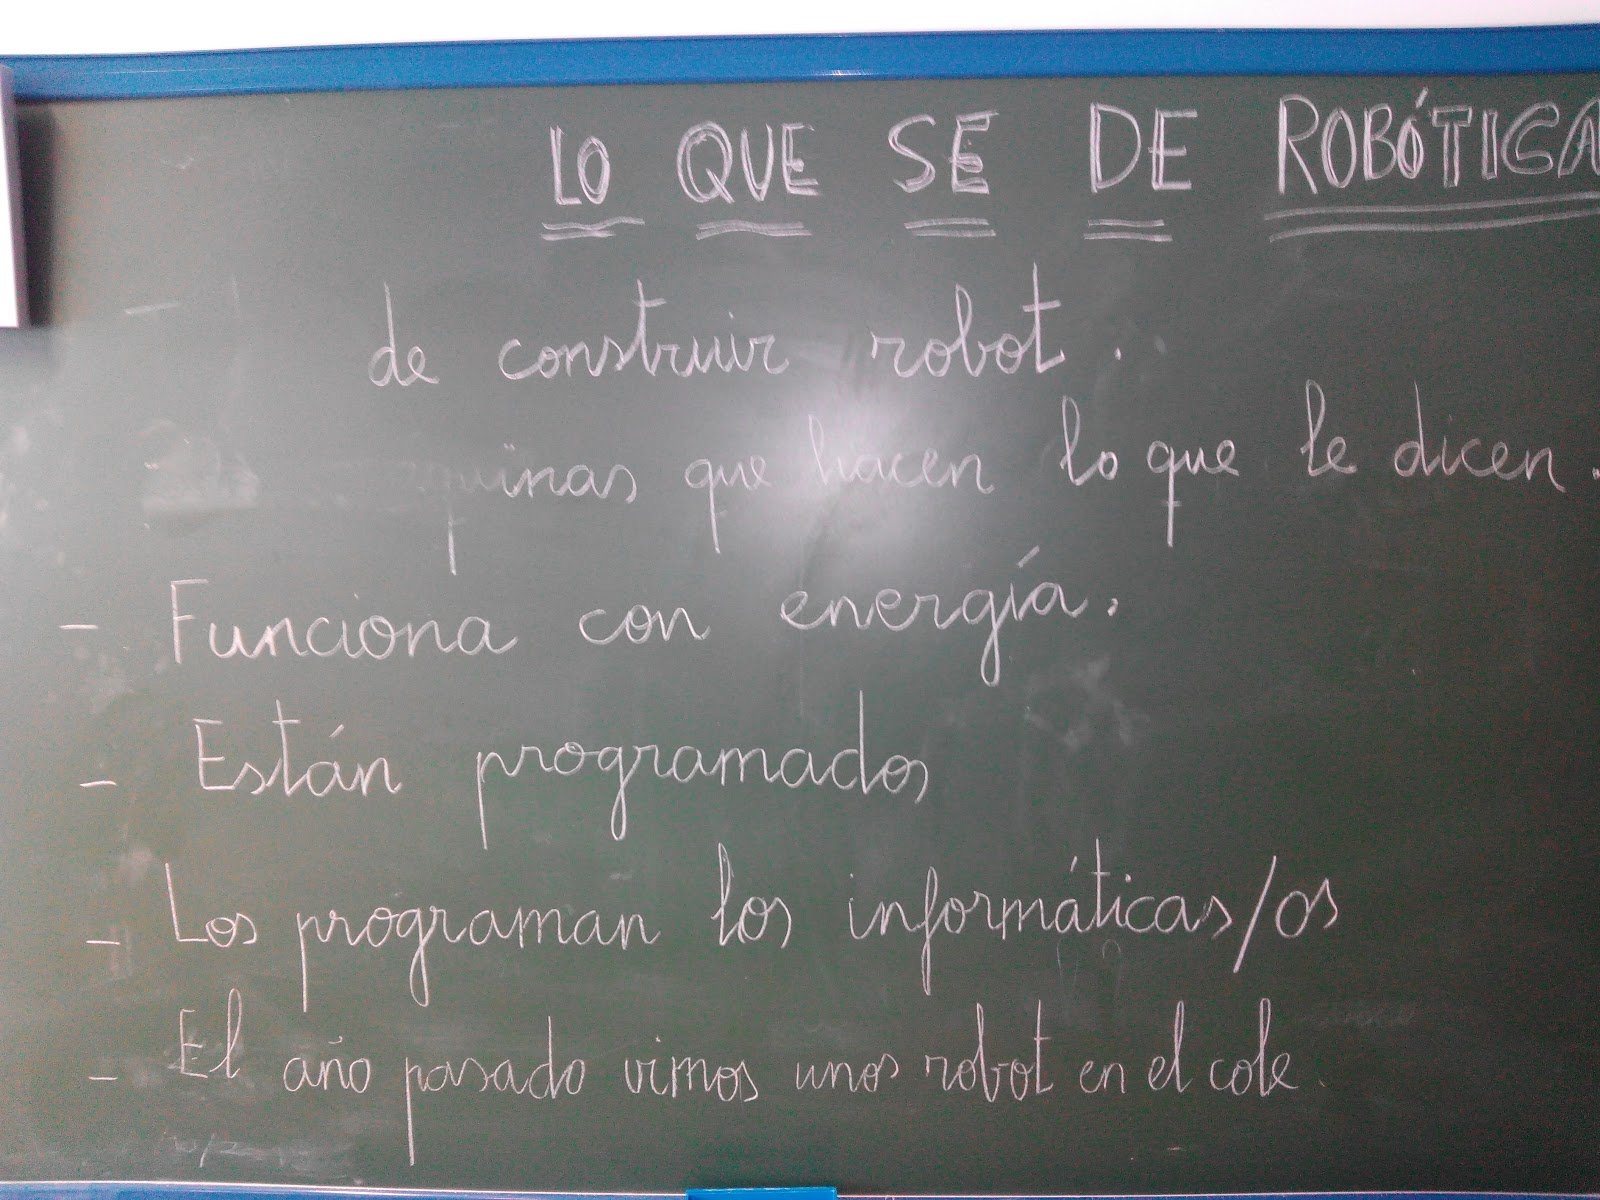 LO QUE SE DE ROBÓTICA
de construir robot.
que hacen lo que le dicen.
- Funciona con energía.
- Están programados
- Los programan los informáticas/os
- El año pasado vimos unos robot en el cole.